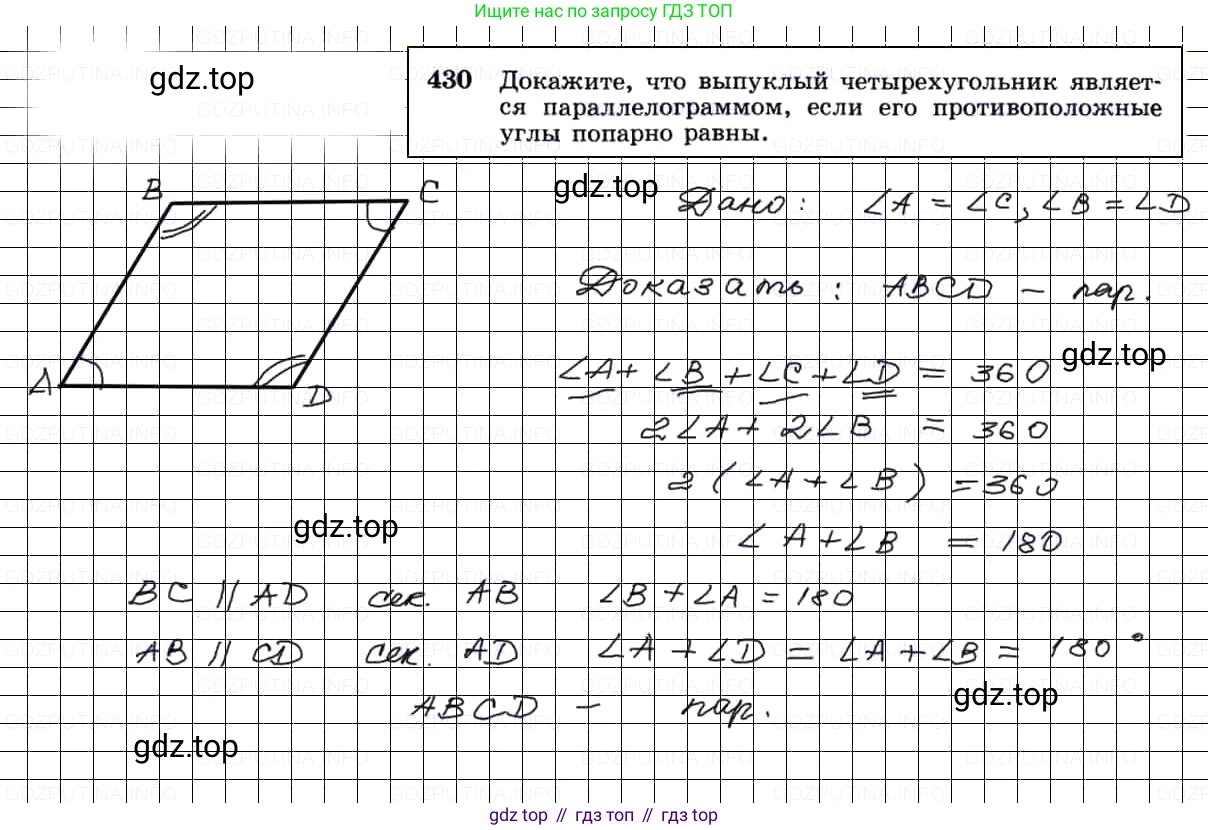 Ищите нас по запросу ГДЗ ТОП
gdz.top
430 Докажите, что выпуклый четырехугольник являет-
ся параллелограммом, если его противоположные
углы попарно равны.
B C
gdz.top
Дано: ∠A = ∠C, ∠B = ∠D
Доказать: ABCD – пар.
gdz.top
A D
∠A + ∠B + ∠C + ∠D = 360
2∠A + 2∠B = 360
2 (∠A + ∠B) = 360
gdz.top
∠A + ∠B = 180
BC || AD сек. AB ∠B + ∠A = 180
AB || CD сек. AD ∠A + ∠D = ∠A + ∠B = 180°
gdz.top
ABCD – пар.
gdz.top
gdz top // гдз топ // гдз top
GDZPUTINA.INFO